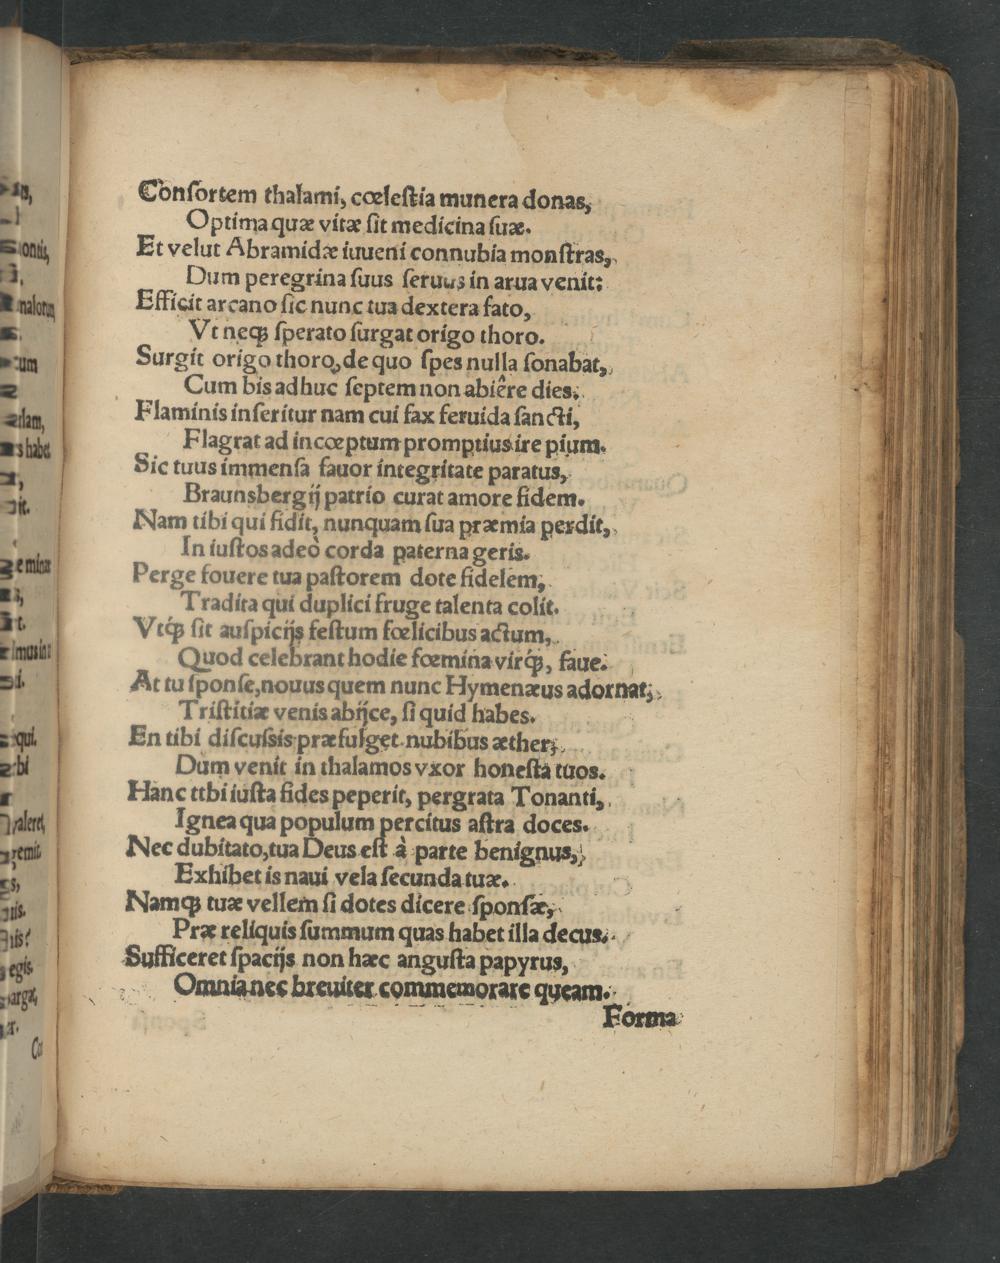 Conſortem thalami, cœleſtia munera donas,
Optima quæ vitæ ſit medicina ſuæ.
Et velut Abramidæ iuueni connubia monſtras,
Dum peregrina ſuus ſeruus in arua venit:
Efficit arcano ſic nunc tua dextera fato,
Vt neqꝫ ſperato ſurgat origo thoro.
Surgit origo thoro, de quo ſpes nulla ſonabat,
Cum bis adhuc ſeptem non abiêre dies.
Flaminis inſeritur nam cui fax feruida ſancti,
Flagrat ad incœptum promptius ire pium.
Sic tuus immenſa fauor integritate paratus,
Braunsbergij patrio curat amore fidem.
Nam tibi qui fidit, nunquam ſua præmia perdit,
In iuſtos adeò corda paterna geris.
Perge fouere tua paſtorem dote fidelem,
Tradita qui duplici fruge talenta colit.
Vtq́ꝫ ſit auſpicijs feſtum fœlicibus actum,
Quod celebrant hodie fœmina virq́ꝫ, faue.
At tu ſponſe, nouus quem nunc Hymenæus adornat,
Triſtitiæ venis abijce, ſi quid habes.
En tibi diſcuſsis præfulget nubibus æther,
Dum venit in thalamos vxor honeſta tuos.
Hanc ttbi iuſta fides peperit, pergrata Tonanti,
Ignea qua populum percitus aſtra doces.
Nec dubitato, tua Deus eſt à parte benignus,
Exhibet is naui vela ſecunda tuæ.
Namqꝫ tuæ vellem ſi dotes dicere ſponſæ,
Præ reliquis ſummum quas habet illa decus.
Sufficeret ſpacijs non hæc anguſta papyrus,
Omnia nec breuiter commemorare queam.
Forma